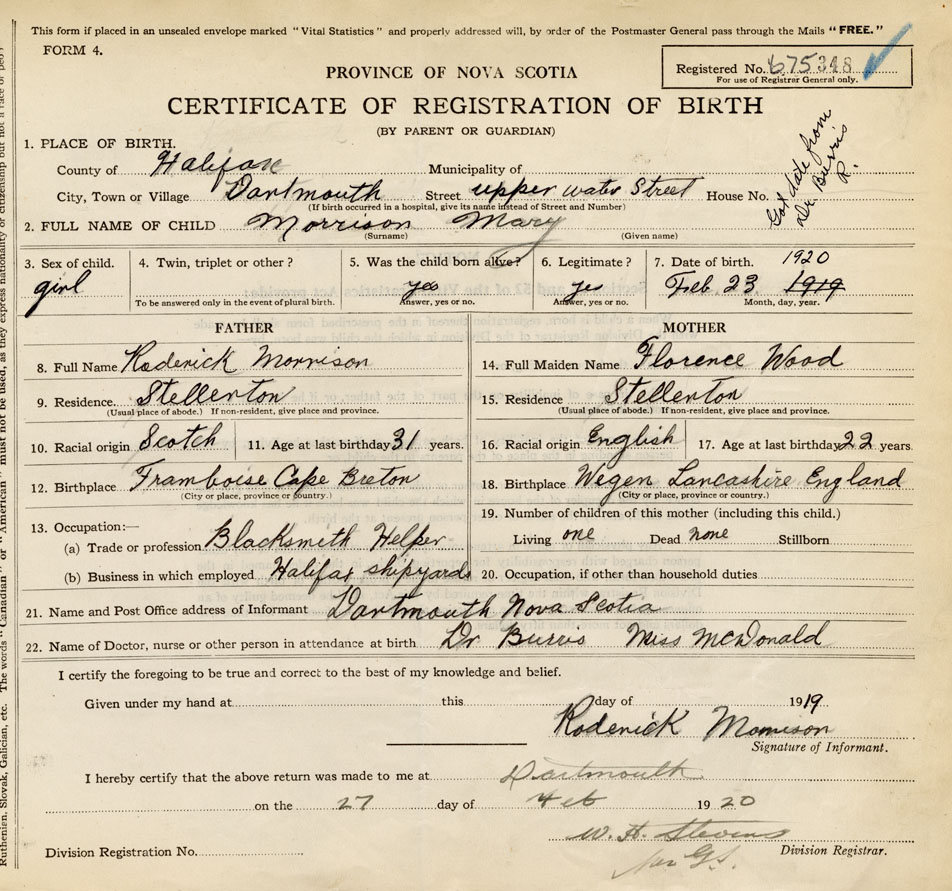 This form if placed in an unsealed envelope marked "Vital Statistics" and properly addressed will, by order of the Postmaster General pass through the Mails "FREE."
FORM 4.
Registered No. 675348
For use of Registrar General only.
PROVINCE OF NOVA SCOTIA
CERTIFICATE OF REGISTRATION OF BIRTH
(BY PARENT OR GUARDIAN)
Got date from
Dr Burris
R.
1. PLACE OF BIRTH.
County of Halifax Municipality of
City, Town or Village Dartmouth Street upper water Street House No.
(If birth occurred in a hospital, give its name instead of Street and Number)
2. FULL NAME OF CHILD Morrison Mary
(Surname) (Given name)
3. Sex of child. 4. Twin, triplet or other? 5. Was the child born alive? 6. Legitimate? 7. Date of birth. 1920
girl yes yes Feb 23 1919
To be answered only in the event of plural birth. Answer, yes or no. Answer, yes or no. Month, day, year.
FATHER MOTHER
8. Full Name Roderick Morrison 14. Full Maiden Name Florence Wood
9. Residence. Stellerton 15. Residence Stellerton
(Usual place of abode.) If non-resident, give place and province. (Usual place of abode.) If non-resident, give place and province.
10. Racial origin Scotch 11. Age at last birthday 31 years. 16. Racial origin English 17. Age at last birthday 22 years.
12. Birthplace Framboise Cape Breton 18. Birthplace Wegen Lancashire England
(City or place, province or country.) (City or place, province or country.)
13. Occupation:— 19. Number of children of this mother (including this child.)
(a) Trade or profession Blacksmith Helper Living one Dead none Stillborn
(b) Business in which employed Halifax shipyards 20. Occupation, if other than household duties
21. Name and Post Office address of Informant Dartmouth Nova Scotia
22. Name of Doctor, nurse or other person in attendance at birth Dr Burris Miss McDonald
I certify the foregoing to be true and correct to the best of my knowledge and belief.
Given under my hand at this day of 1919
Roderick Morrison
Signature of Informant.
I hereby certify that the above return was made to me at Dartmouth
on the 27 day of Feb 1920
W. H. Stevens
Division Registration No. Division Registrar.
Ruthenian, Slovak, Galician, etc. The words "Canadian" or "American" must not be used, as they express nationality or citizenship but not a race or